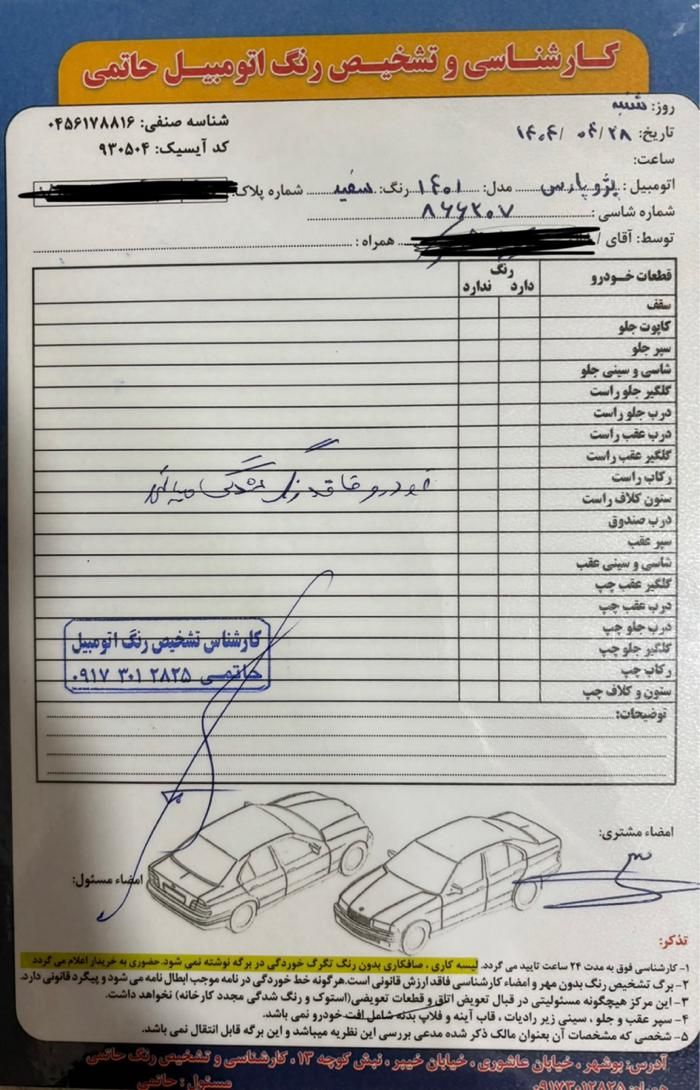 کارشناسی و تشخیص رنگ اتومبیل حاتمی
روز: شنبه
شناسه صنفی: ۰۴۵۶۱۷۸۸۱۶
تاریخ: ۱۴۰۴/۰۴/۲۸
کد آیسیک: ۹۳۰۵۰۴
ساعت:
اتومبیل: پژو پارس مدل: ۱۴۰۱ رنگ: سفید شماره پلاک:
شماره شاسی: ۸۶۶۲۰۷
توسط: آقای / همراه:
قطعات خودرو رنگ
دارد ندارد
سقف
کاپوت جلو
سپر جلو
شاسی و سینی جلو
گلگیر جلو راست
درب جلو راست
درب عقب راست
گلگیر عقب راست
رکاب راست
ستون کلاف راست
درب صندوق
سپر عقب
شاسی و سینی عقب
گلگیر عقب چپ
درب عقب چپ
درب جلو چپ
گلگیر جلو چپ
رکاب چپ
ستون و کلاف چپ
خودرو فاقد رنگ شدگی میباشد
کارشناس تشخیص رنگ اتومبیل
حاتمی ۲۸۲۵ ۳۰۱ ۰۹۱۷
توضیحات:
امضاء مشتری:
امضاء مسئول:
تذکر:
۱- کارشناسی فوق به مدت ۲۴ ساعت تایید می گردد. لیسه کاری ، صافکاری بدون رنگ تگرگ خوردگی در برگه نوشته نمی شود. حضوری به خریدار اعلام می گردد.
۲- برگ تشخیص رنگ بدون مهر و امضاء کارشناسی فاقد ارزش قانونی است. هرگونه خط خوردگی در نامه موجب ابطال نامه می شود و پیگرد قانونی دارد.
۳- این مرکز هیچگونه مسئولیتی در قبال تعویض اتاق و قطعات تعویضی (استوک و رنگ شدگی مجدد کارخانه) نخواهد داشت.
۴- سپر عقب و جلو ، سینی زیر رادیات ، قاب آینه و فلاپ بدنه شامل افت خودرو نمی باشد.
۵- شخصی که مشخصات آن بعنوان مالک ذکر شده مدعی بررسی این نظریه میباشد و این برگه قابل انتقال نمی باشد.
آدرس: بوشهر ، خیابان عاشوری ، خیابان خیبر ، نبش کوچه ۱۳ ، کارشناسی و تشخیص رنگ حاتمی
مسئول: حاتمی